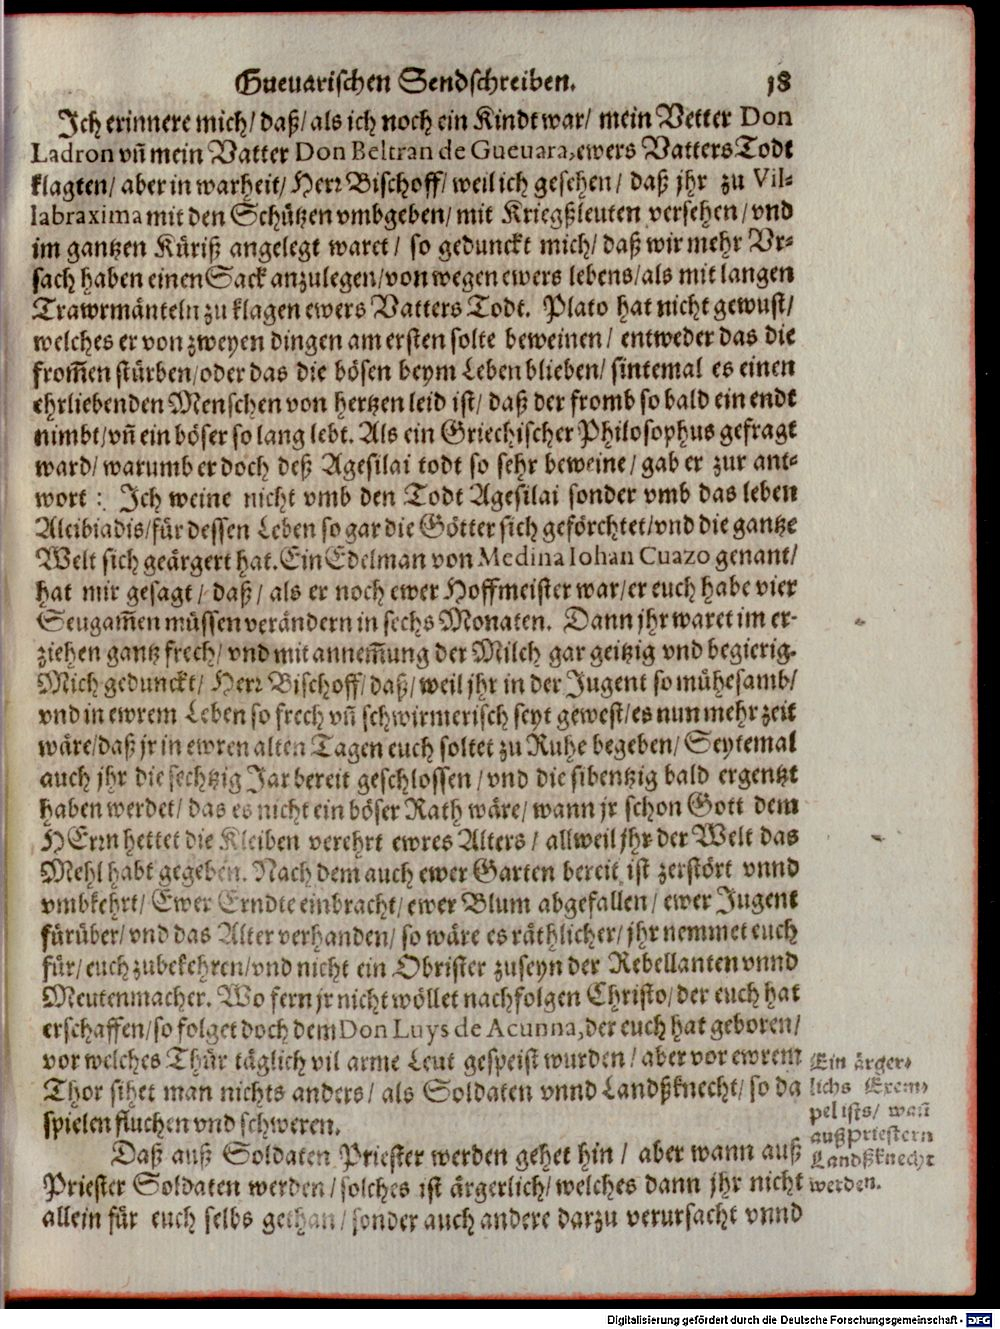 Gueuarischen Sendschreiben. 18
Ich erinnere mich/ daß/ als ich noch ein Kindt war/ mein Vetter Don
Ladron vñ mein Vatter Don Beltran de Gueuara, ewers Vatters Todt
klagten/ aber in warheit/ Herr Bischoff/ weil ich gesehen/ daß jhr zu Vil-
labraxima mit den Schützen vmbgeben/ mit Kriegßleuten versehen/ vnd
im gantzen Küriß angelegt waret/ so gedunckt mich/ daß wir mehr Vr-
sach haben einen Sack anzulegen/ von wegen ewers lebens/ als mit langen
Trawrmänteln zu klagen ewers Vatters Todt. Plato hat nicht gewust/
welches er von zweyen dingen am ersten solte beweinen/ entweder das die
from̃en stürben/ oder das die bösen beym Leben blieben/ sintemal es einen
ehrliebenden Menschen von hertzen leid ist/ daß der fromb so bald ein endt
nimbt/ vñ ein böser so lang lebt. Als ein Griechischer Philosophus gefragt
ward/ warumb er doch deß Agesilai todt so sehr beweine/ gab er zur ant-
wort: Ich weine nicht vmb den Todt Agesilai sonder vmb das leben
Alcibiadis/ für dessen Leben so gar die Götter sich geförchtet/ vnd die gantze
Welt sich geärgert hat. Ein Edelman von Medina Iohan Cuazo genant/
hat mir gesagt/ daß/ als er noch ewer Hoffmeister war/ er euch habe vier
Seugam̃en müssen verändern in sechs Monaten. Dann jhr waret im er-
ziehen gantz frech/ vnd mit annem̃ung der Milch gar geitzig vnd begierig.
Mich gedunckt/ Herr Bischoff/ daß/ weil jhr in der Jugent so mühesamb/
vnd in ewrem Leben so frech vñ schwirmerisch seyt gewest/ es nun mehr zeit
wäre/ daß jr in ewren alten Tagen euch soltet zu Ruhe begeben/ Seytemal
auch jhr die sechtzig Jar bereit geschlossen/ vnd die sibentzig bald ergentzt
haben werdet/ das es nicht ein böser Rath wäre/ wann jr schon Gott dem
HErrn hettet die Kleiben verehrt ewres Alters/ allweil jhr der Welt das
Mehl habt gegeben. Nach dem auch ewer Garten bereit ist zerstört vnnd
vmbkehrt/ Ewer Erndte einbracht/ ewer Blum abgefallen/ ewer Jugent
fürüber/ vnd das Alter verhanden/ so wäre es räthlicher/ jhr nemmet euch
für/ euch zubekehren/ vnd nicht ein Obrister zuseyn der Rebellanten vnnd
Meutenmacher. Wo fern jr nicht wöllet nachfolgen Christo/ der euch hat
erschaffen/ so folget doch dem Don Luys de Acunna, der euch hat geboren/
vor welches Thür täglich vil arme Leut gespeist wurden/ aber vor ewrem
Thor sihet man nichts anders/ als Soldaten vnnd Landßknecht/ so da
spielen fluchen vnd schweren.
Daß auß Soldaten Priester werden gehet hin/ aber wann auß
Priester Soldaten werden/ solches ist ärgerlich/ welches dann jhr nicht
allein für euch selbs gethan/ sonder auch andere darzu verursacht vnnd
Ein ärger-
lichs Exem-
pel ists/ wañ
auß Priestern
Landßknecht
werden.
Digitalisierung gefördert durch die Deutsche Forschungsgemeinschaft - DFG